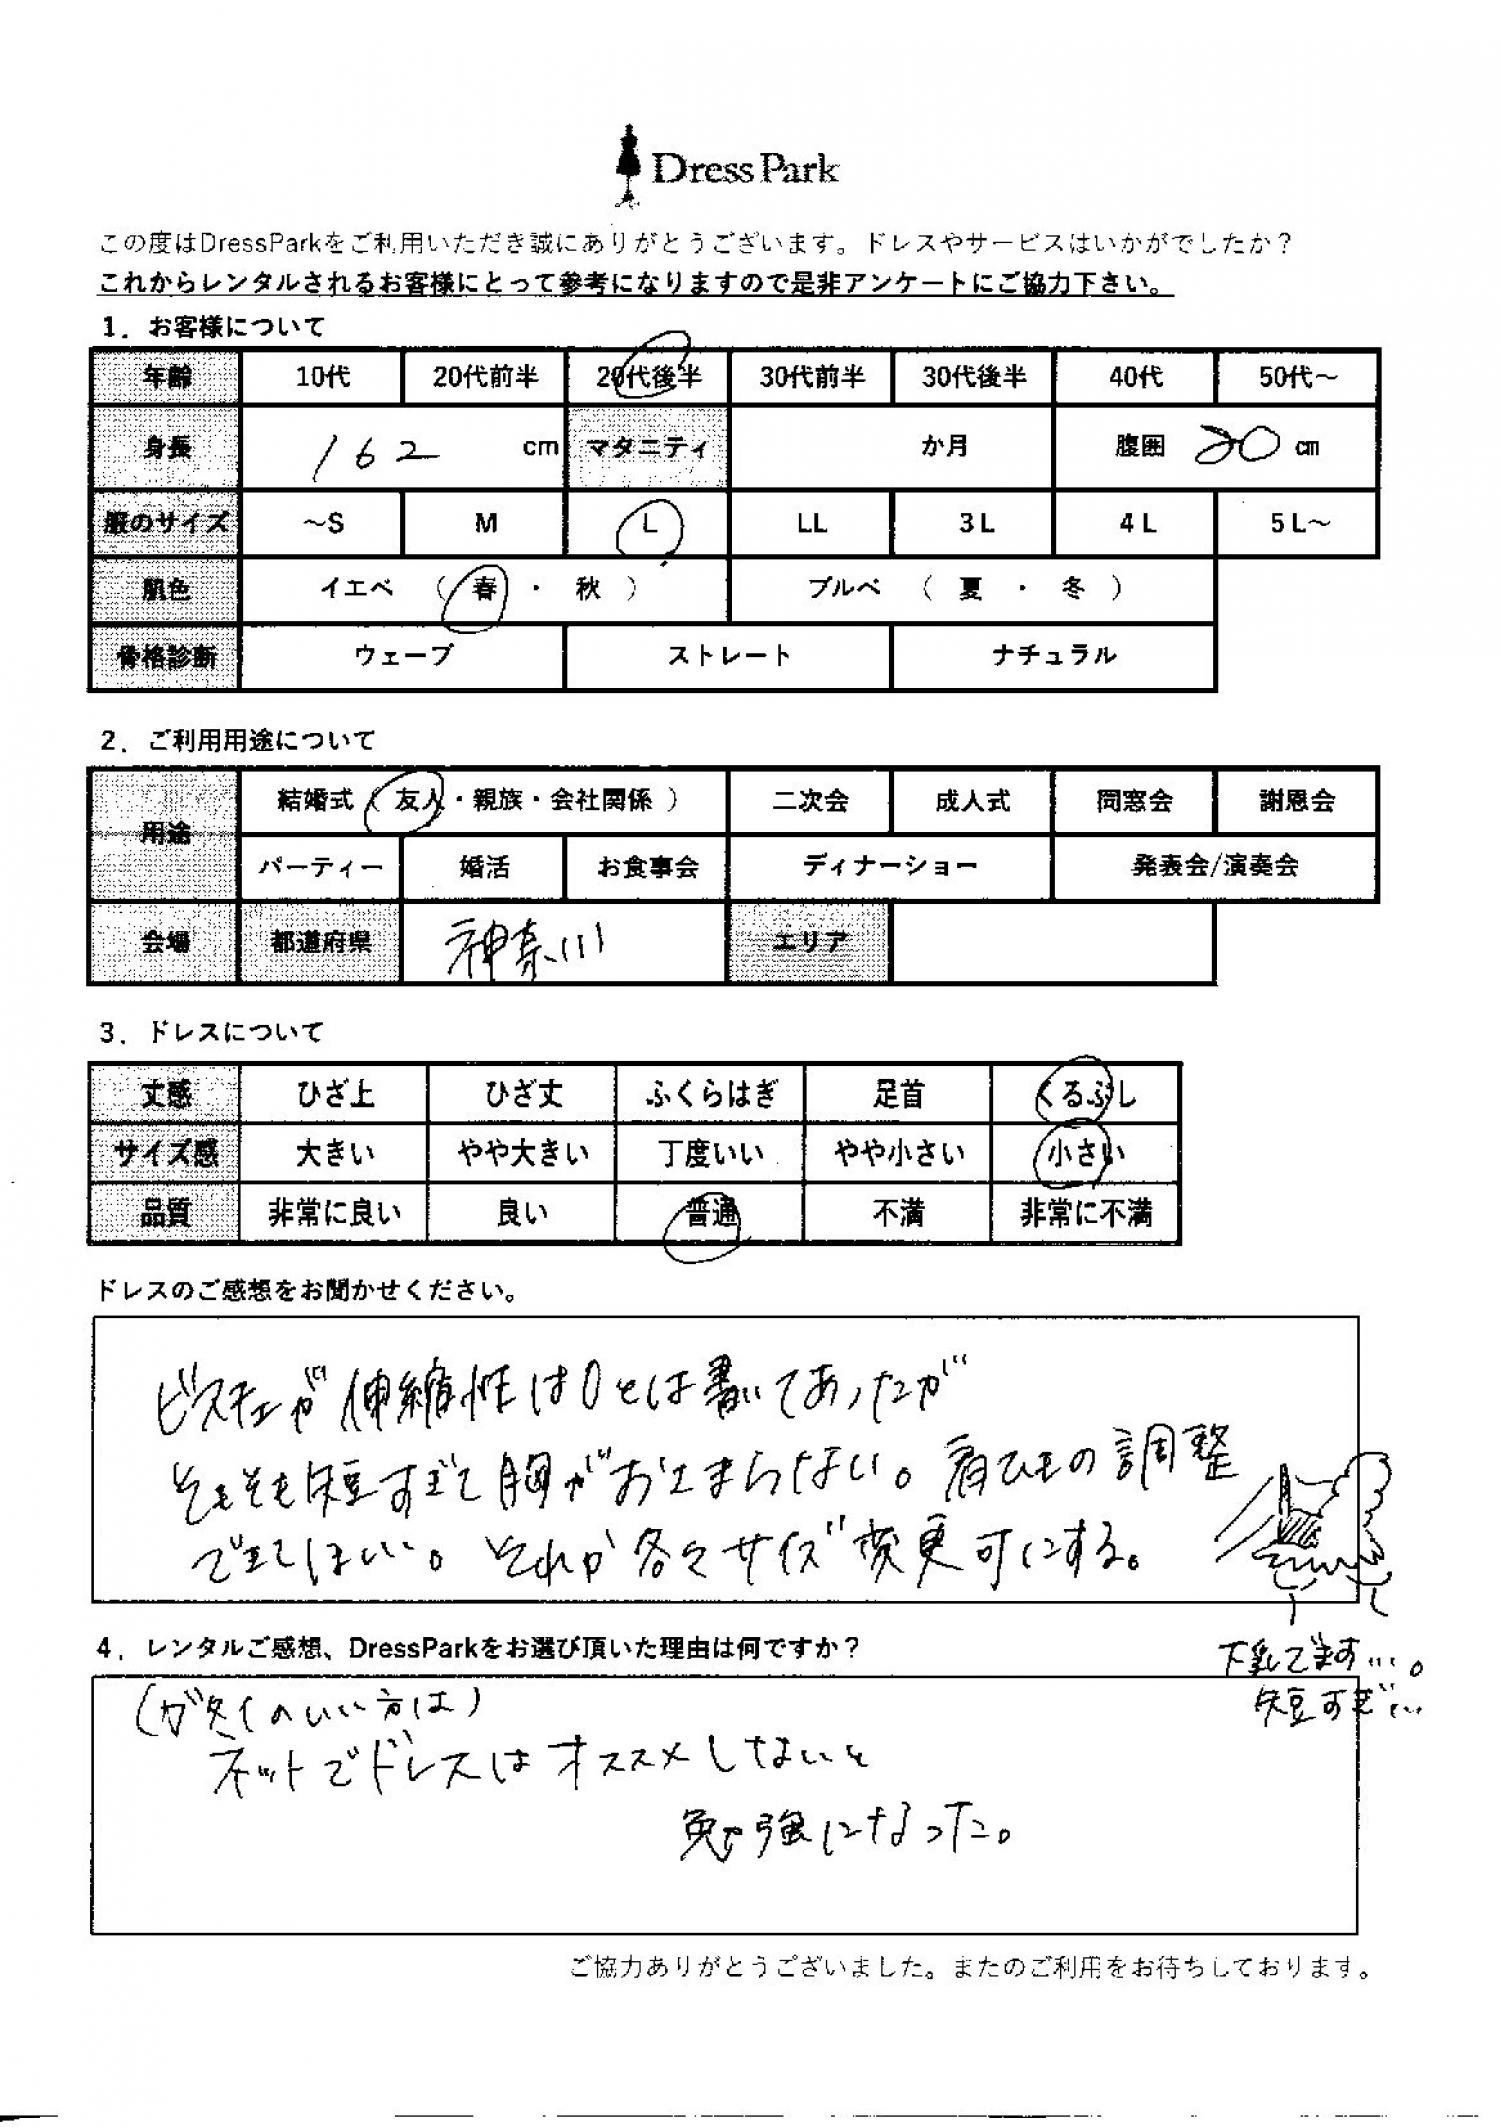 Dress Park
この度はDressParkをご利用いただき誠にありがとうございます。ドレスやサービスはいかがでしたか？
これからレンタルされるお客様にとって参考になりますので是非アンケートにご協力下さい。
1．お客様について
年齢 10代 20代前半 20代後半 30代前半 30代後半 40代 50代～
身長 162 cm マタニティ か月 腹囲 cm
服のサイズ ～S M L LL 3L 4L 5L～
肌色 イエベ （ 春 ・ 秋 ） ブルベ （ 夏 ・ 冬 ）
骨格診断 ウェーブ ストレート ナチュラル
2．ご利用用途について
用途 結婚式（ 友人・親族・会社関係 ） 二次会 成人式 同窓会 謝恩会
パーティー 婚活 お食事会 ディナーショー 発表会/演奏会
会場 都道府県 神奈川 エリア
3．ドレスについて
丈感 ひざ上 ひざ丈 ふくらはぎ 足首 くるぶし
サイズ感 大きい やや大きい 丁度いい やや小さい 小さい
品質 非常に良い 良い 普通 不満 非常に不満
ドレスのご感想をお聞かせください。
ビスチェが伸縮性は0とは書いてあったが
そもそも短すぎて胸がおさまらない。肩ひもの調整
できてほしい。それか各々サイズ変更可にする。
4．レンタルご感想、DressParkをお選び頂いた理由は何ですか？
下乳でます…。
短すぎ…
(ガタイのいい方は)
ネットでドレスはオススメしないと
勉強になった。
ご協力ありがとうございました。またのご利用をお待ちしております。